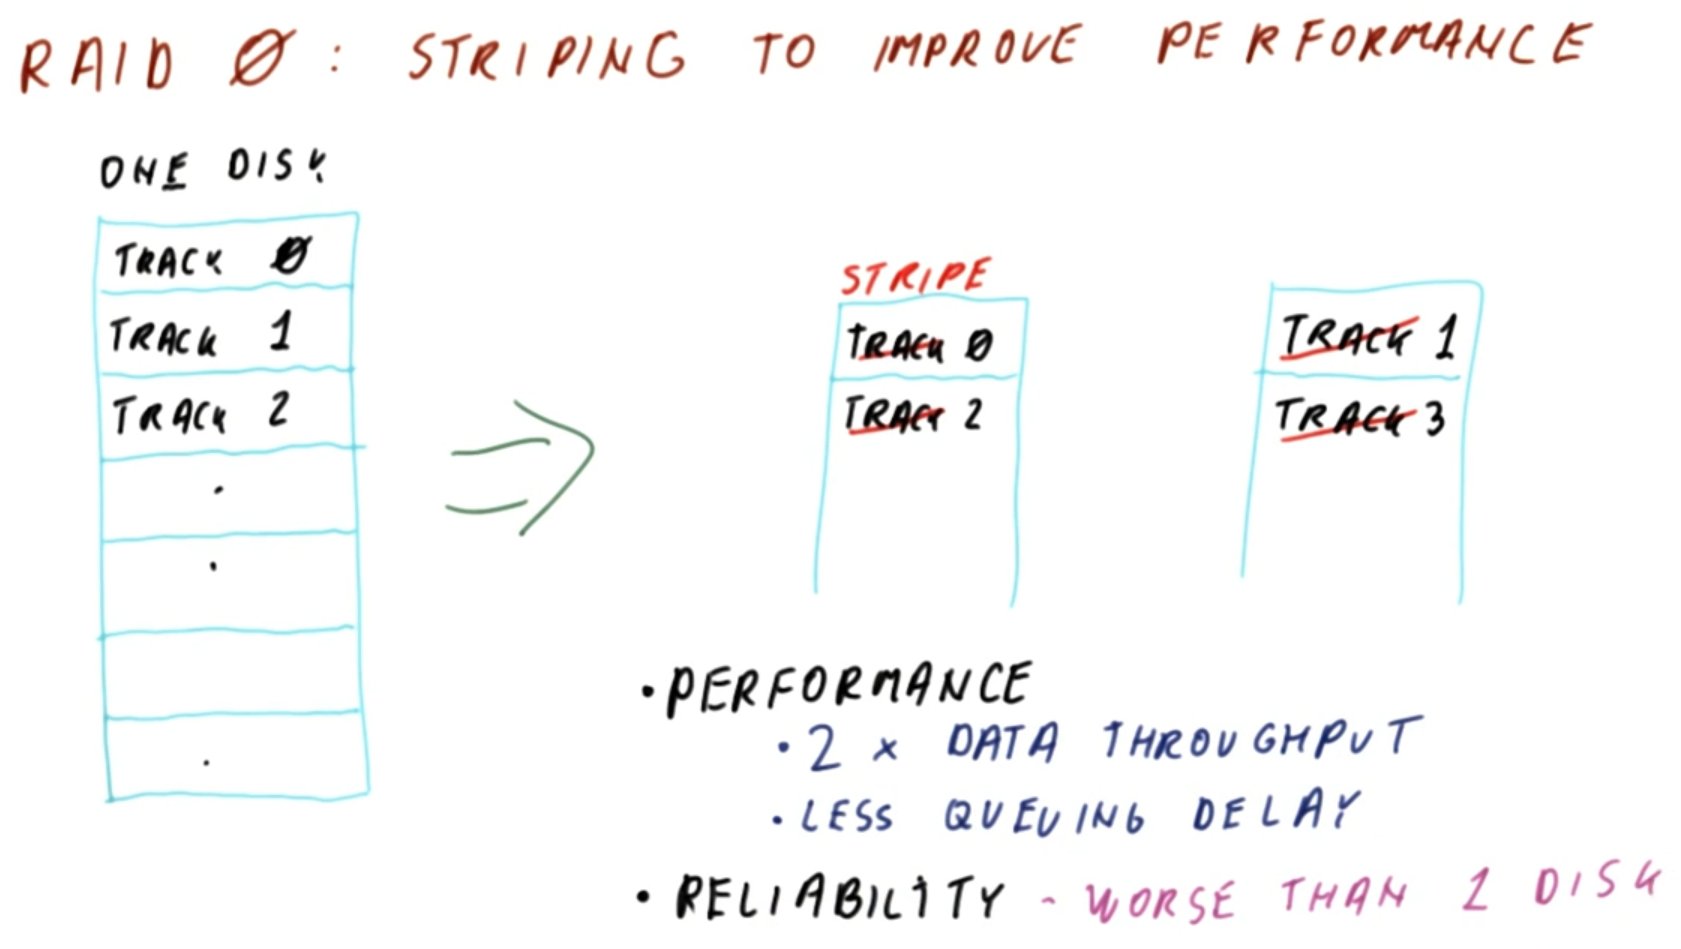 RAID 0: STRIPING TO IMPROVE PERFORMANCE
ONE DISK
TRACK 0
TRACK 1
TRACK 2
.
.
.
STRIPE
TRACK 0
TRACK 2
TRACK 1
TRACK 3
• PERFORMANCE
• 2 x DATA THROUGHPUT
• LESS QUEUING DELAY
• RELIABILITY - WORSE THAN 1 DISK